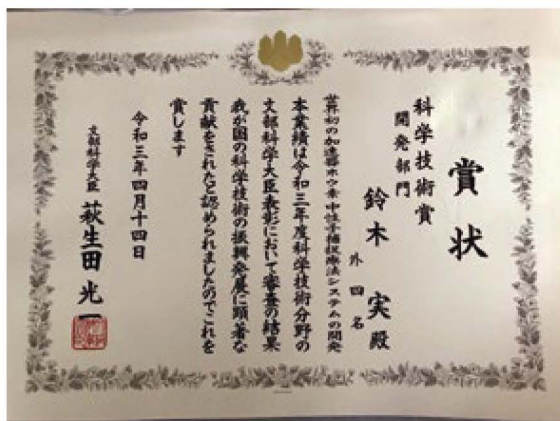 賞状
科学技術賞
開発部門
鈴木 実殿
外四名
世界初の加速器ホウ素中性子捕捉療法システムの開発
本業績は令和三年度科学技術分野の
文部科学大臣表彰において審査の結果
我が国の科学技術の振興発展に顕著な
貢献をされたと認められましたのでこれを
賞します
令和三年四月十四日
文部科学大臣 萩生田光一